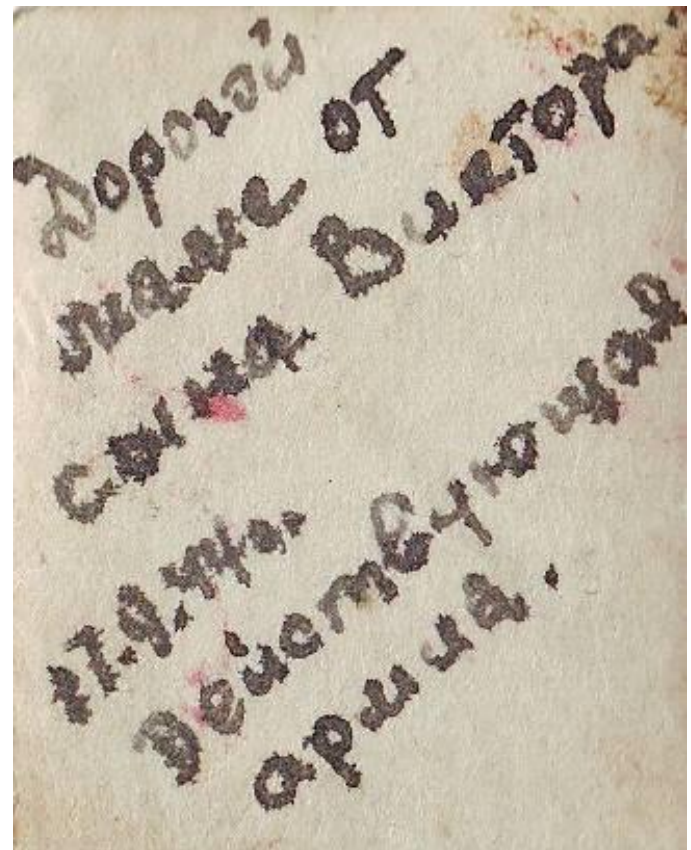 Дорогой
маме от
сына Виктора.
17.9.44г.
Действующая
армия.